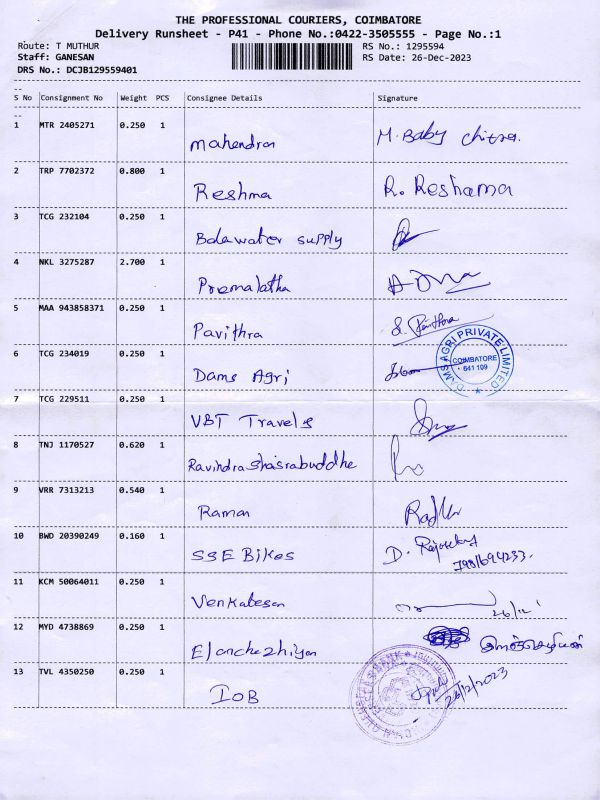 THE PROFESSIONAL COURIERS, COIMBATORE
Delivery Runsheet - P41 - Phone No.:0422-3505555 - Page No.:1
Route: T MUTHUR RS No.: 1295594
Staff: GANESAN RS Date: 26-Dec-2023
DRS No.: DCJB129559401
S No Consignment No Weight PCS Consignee Details Signature
1 MTR 2405271 0.250 1
Mahendran M. Baby Chitra.
2 TRP 7702372 0.800 1
Reshma R. Reshama
3 TCG 232104 0.250 1
Balawater supply
4 NKL 3275287 2.700 1
Premalatha
5 MAA 943858371 0.250 1
Pavithra S. Pavithra
6 TCG 234019 0.250 1
Dams Agri
DAMS AGRI PRIVATE LIMITED
COIMBATORE
641 109
7 TCG 229511 0.250 1
VBT Travels
8 TNJ 1170527 0.620 1
Ravindra Shasrabuddhe
9 VRR 7313213 0.540 1
Raman
10 BWD 20390249 0.160 1
SSE Bikes D.
11 KCM 50064011 0.250 1
Venkatesan 26/12
12 MYD 4738869 0.250 1
Elanchezhiyan
13 TVL 4350250 0.250 1
IOB
26/12/2023